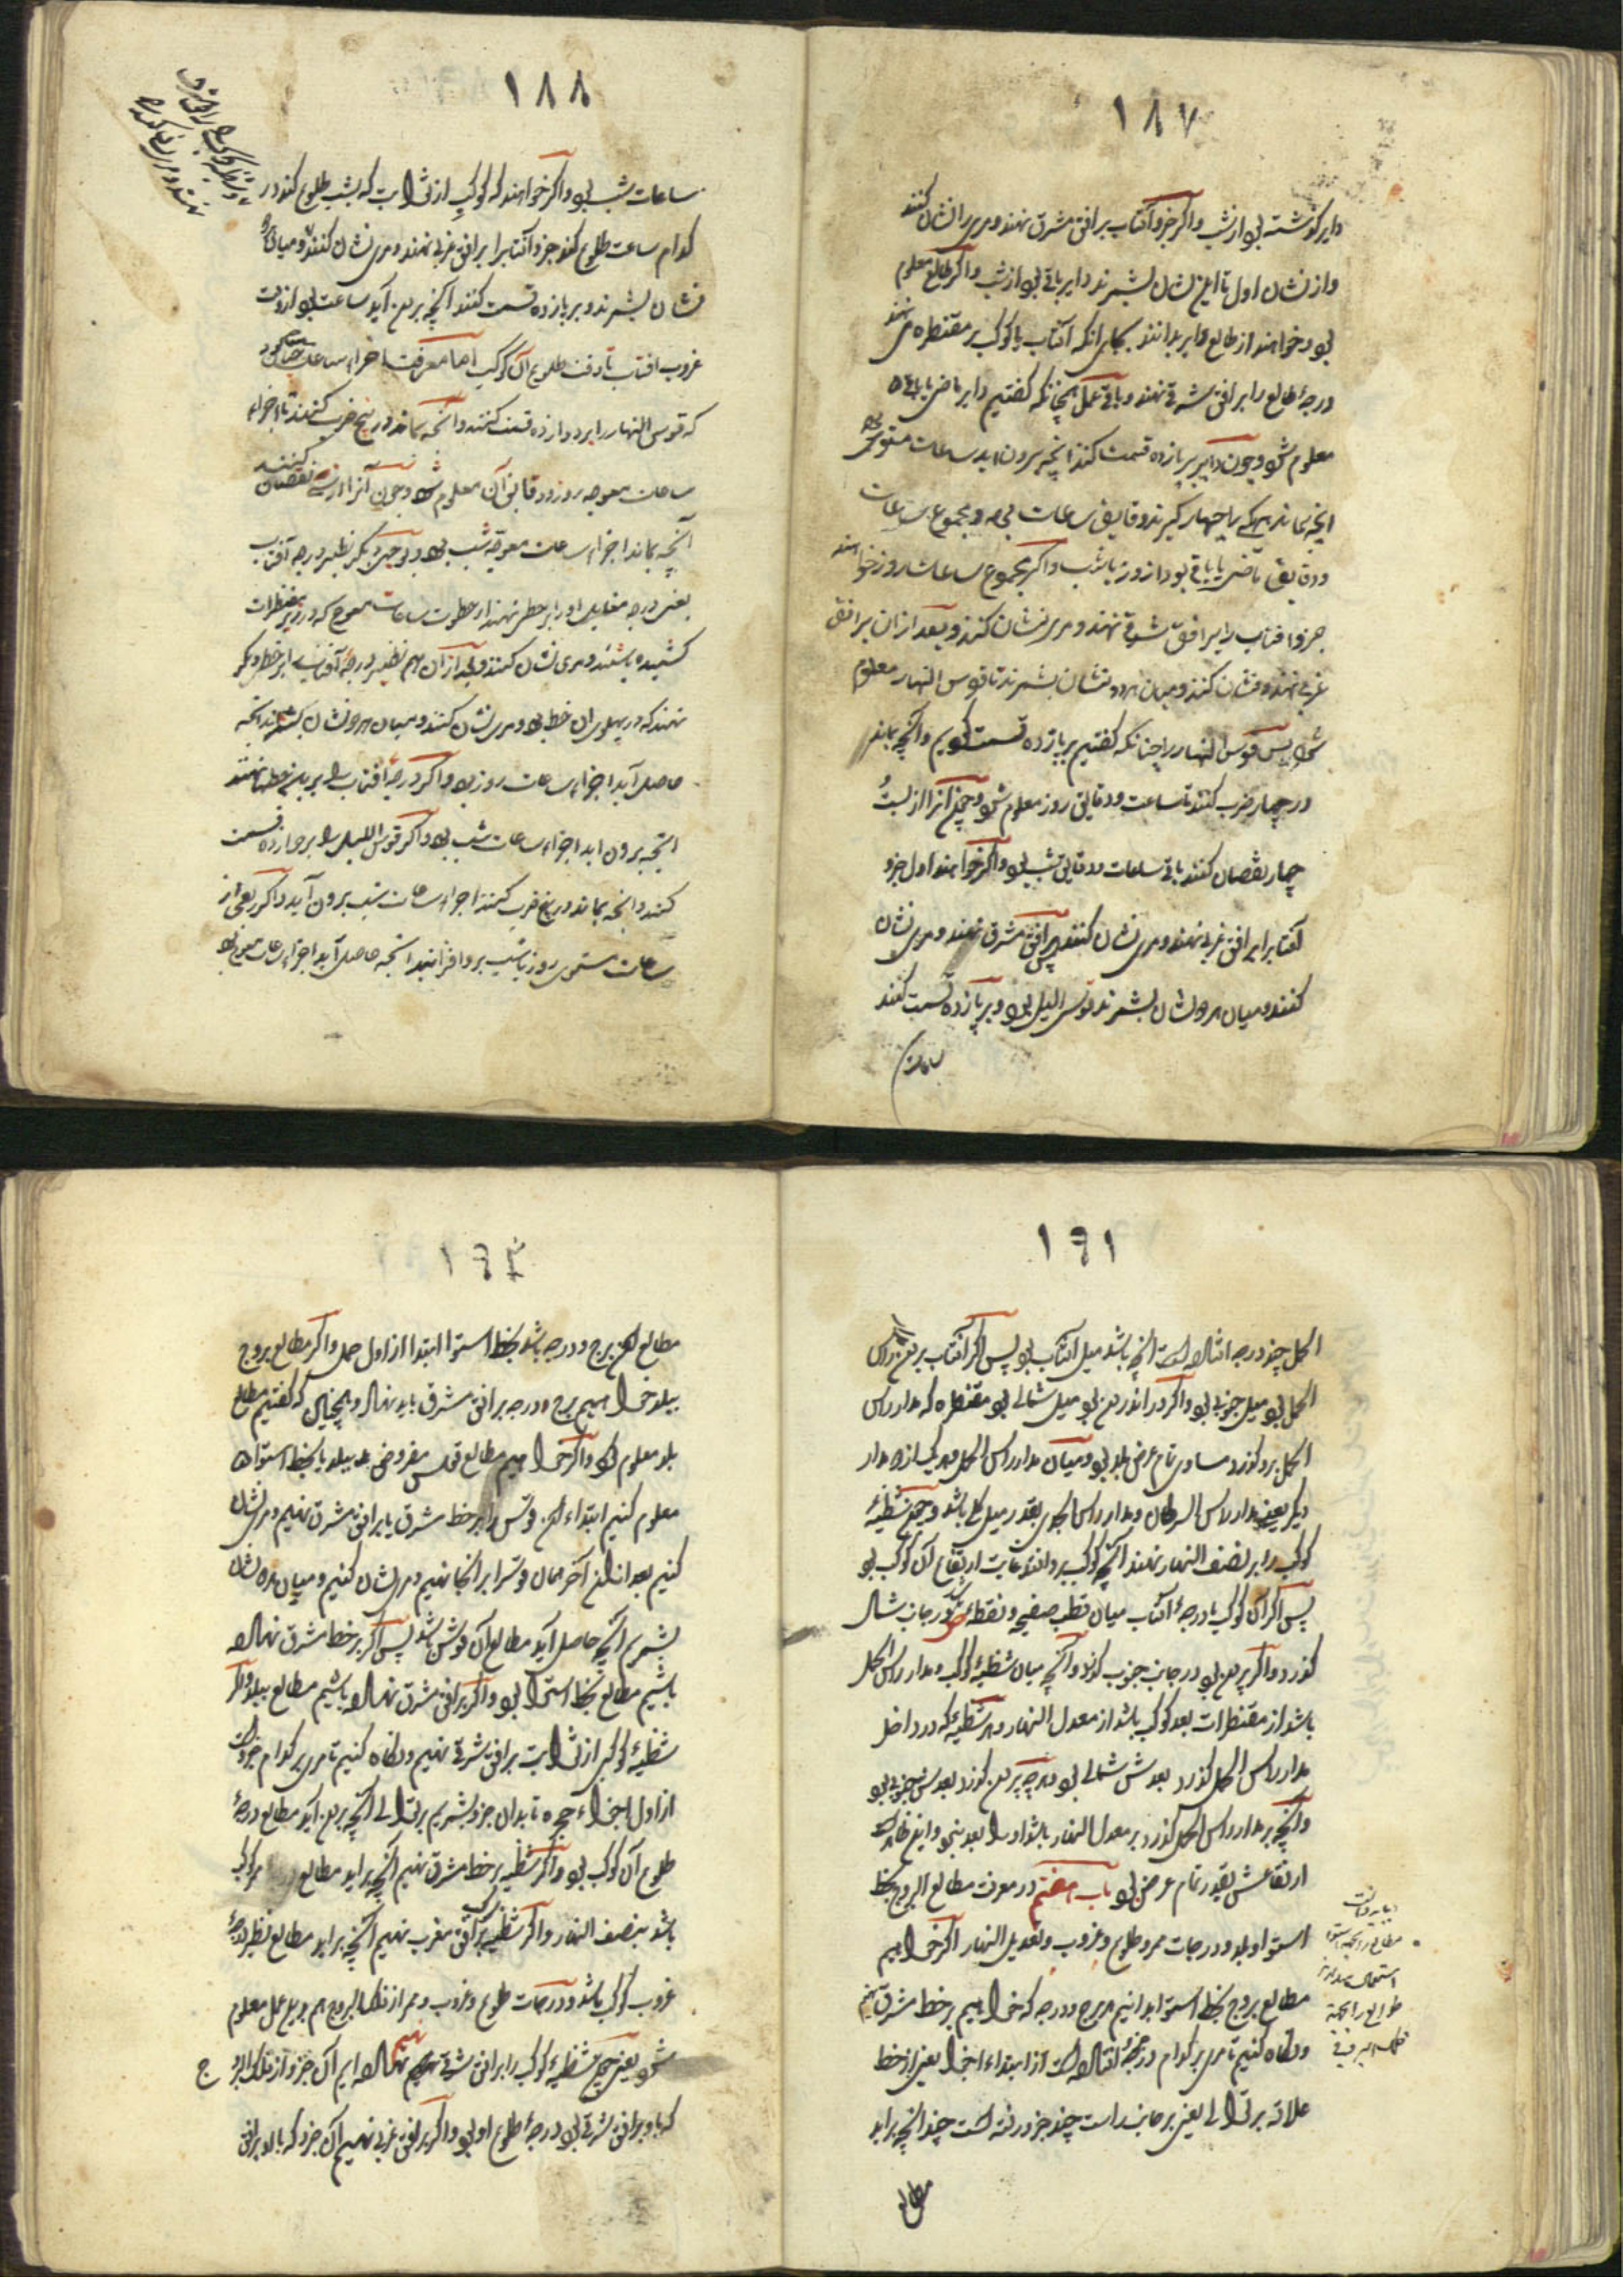 ١٨٧
دایر گذشته بود از شب و اگر جزو آفتاب بر افق مشرق نهند و مری را نشان کنند
و از نشان اول تا این نشان بشمرند دایر باقی بود از شب و اگر طالع معلوم
بود و خواهند از طالع دایر بدانند بجای انکه آفتاب یا کوکب بر مقنطره می نهند
درجهٔ طالع را بر افق شرقی نهند و باقی عمل همچنانکه گفتیم دایر ماضی یا باقی
معلوم شود و چون دایر بر پانزده قسمت کنند انچه بیرون اید ساعات مستوی
انچه بماند هر یکی را چهار گیرند دقایق ساعات بود و مجموع ساعات
و دقایق ماضی یا باقی بود از روز یا شب و اگر مجموع ساعات روز خواهند
جزو افتاب را بر افق شرقی نهند و مری نشان کنند و بعد از ان بر افق
غربی نهند و نشان کنند و میان هر دو نشان بشمرند تا قوس النهار معلوم
شود پس قوس النهار را چنانکه گفتیم بر پانزده قسمت کنیم و انچه بماند
در چهار ضرب کنند تا ساعت و دقایق روز معلوم شود و چون آنرا از بیست و
چهار نقصان کنند باقی ساعات و دقایق شب بود و اگر خواهند اول جزو
آفتاب را بر افق غربی نهند و مری نشان کنند پس بر افق مشرق نهند و مری نشان
کنند و میان هر دو نشان بشمرند قوس اللیل بود و بر پانزده قسمت کنند
ساعات
١٨٨
ساعات شب بود و اگر خواهند که کوکبی از ثوابت که بشب طلوع کند در
کدام ساعت طلوع کند جزو آفتاب را بر افق غربی نهند و مری نشان کنند و میان هر دو
نشان بشمرند و بر پانزده قسمت کنند آنچه بیرون آید ساعت بود از وقت
غروب افتاب تا وقت طلوع آن کوکب اما معرفت اجزاء ساعات
که قوس النهار را بر دوازده قسمت کنند و انچه بماند در پنج ضرب کنند تا اجزاء
ساعات معوجه روز و دقایق آن معلوم شود و چون آنرا از سی نقصان کنند
آنچه بماند اجزاء ساعات معوجه شب بود و بوجهی دیگر نظیر درجه آفتاب
یعنی درجه مقابل او را بر خطی نهند از خطوط ساعات معوج که در زیر مقنطرات
کشیده باشند و مری نشان کنند و بعد از آن هم نظیر درجهٔ آفتاب را بر خط دیگر
نهند که در پهلوی ان خط بود و مری نشان کنند و میان هر دو نشان بشمرند انچه
حاصل آید اجزاء ساعات روز بود و اگر درجهٔ افتاب را بر این خطها نهند
انچه بیرون اید اجزاء ساعات شب بود و اگر قوس اللیل را بر دوازده قسمت
کنند و انچه بماند در پنج ضرب کنند اجزاء ساعات شب بیرون آید و اگر ربعی از
ساعات مستوی روز یا شب برو افزایند انچه حاصل آید اجزاء ساعات معوج بود
١٩١
الحمل چند درجه افتاده است انچه باشد میل آفتاب بود پس اگر آفتاب بیرون راس
الحمل بود میل جنوبی بود و اگر در اندرون بود میل شمالی بود مقنطره که مدار راس
الحمل برو گذرد مساوی تمام عرض بلد بود و میان مدار راس الحمل و هر یک از دو مدار
دیگر یعنی مدار راس السرطان و مدار راس الجدی بقدر میل کلی باشد و چون شظیهٔ
کوکب را بر نصف النهار نهند آنچه کوکب برو افتد غایت ارتفاع آن کوکب بود
پس اگر آن کوکب یا درجهٔ آفتاب میان قطب صفیحه و نقطهٔ در جانب شمال
گذرد و اگر بیرون بود در جانب جنوب گذرد و انچه میان شظیهٔ کوکب و مدار راس الحمل
باشد از مقنطرات بعد کوکب باشد از معدل النهار و هر شظیه که در داخل
مدار راس الحمل گذرد بعدش شمالی بود و هر چه بیرون گذرد بعدش جنوبی بود
و انچه بر مدار راس الحمل گذرد بر معدل النهار باشد او را بعد نبود و این ظاهر است
ارتفاعش بقدر تمام عرض بود باب هفتم در معرفت مطالع البروج بخط
استوا و بلد و درجات ممر و طلوع و غروب و تعدیل النهار اگر خواهیم
مطالع بروج بخط استوا بدانیم هر برج و درجه که خواهیم بر خط مشرق نهیم
و نگاه کنیم تا مری بر کدام درجه افتاده است از ابتداء اجزا یعنی از خط
علاقه بر توالی یعنی بر جانب راست چند جزو رفته است چند انچه براید
مطالع
١٩٢
مطالع ان برج و درجه باشد بخط استوا ابتدا از اول حمل و اگر مطالع بروج
ببلد خواهیم برج و درجه بر افق مشرق باید نهاد و همچنان که گفتیم مطالع
بلد معلوم شود و اگر خواهیم مطالع قوس مفروض ببلد یا بخط استوا
معلوم کنیم ابتداء ان قوس را بر خط مشرق یا بر افق مشرق نهیم و مری نشان
کنیم بعد از ان آخر همان قوس را بر انجا نهیم و مری نشان کنیم و میان هر دو نشان
بشمریم آنچه حاصل آید مطالع آن قوس باشد پس اگر بر خط مشرق نهاده
باشیم مطالع بخط استوا بود و اگر بر افق مشرق نهاده باشیم مطالع ببلد و اگر
شظیهٔ کوکبی از ثوابت بر افق شرقی نهیم و نگاه کنیم تا مری بر کدام جزو است
از اول اجزاء حجره تا بدان جزو بشمریم بر توالی انچه بیرون اید مطالع درجهٔ
طلوع آن کوکب بود و اگر شظیه بر خط مشرق نهیم انچه براید مطالع ممر کوکب
باشد بنصف النهار و اگر شظیه بر افق مغرب نهیم انچه براید مطالع نظیر درجهٔ
غروب کوکب باشد و درجات طلوع و غروب و ممر از فلک البروج هم بدین عمل معلوم
شود یعنی چون شظیهٔ کوکب را بر افق شرقی نهاده ایم آن جزو از فلک البروج
که با او بر افق شرقی بود درجهٔ طلوع او بود و اگر بر افق غربی نهیم آن جزو که با او بر افق